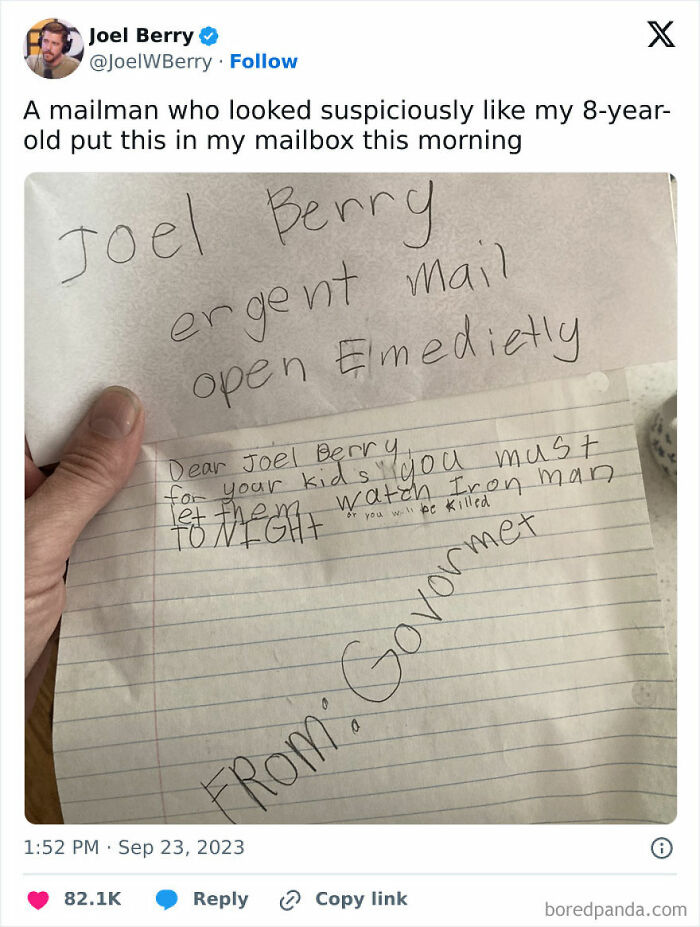 Joel Berry
@JoelWBerry · Follow
A mailman who looked suspiciously like my 8-year-
old put this in my mailbox this morning
Joel Berry
ergent mail
open Emedietly
Dear Joel Berry,
for your kids you must
let them watch Iron man
TONIGHT or you will be killed
FROM: Govormet
1:52 PM · Sep 23, 2023
82.1K Reply Copy link
boredpanda.com